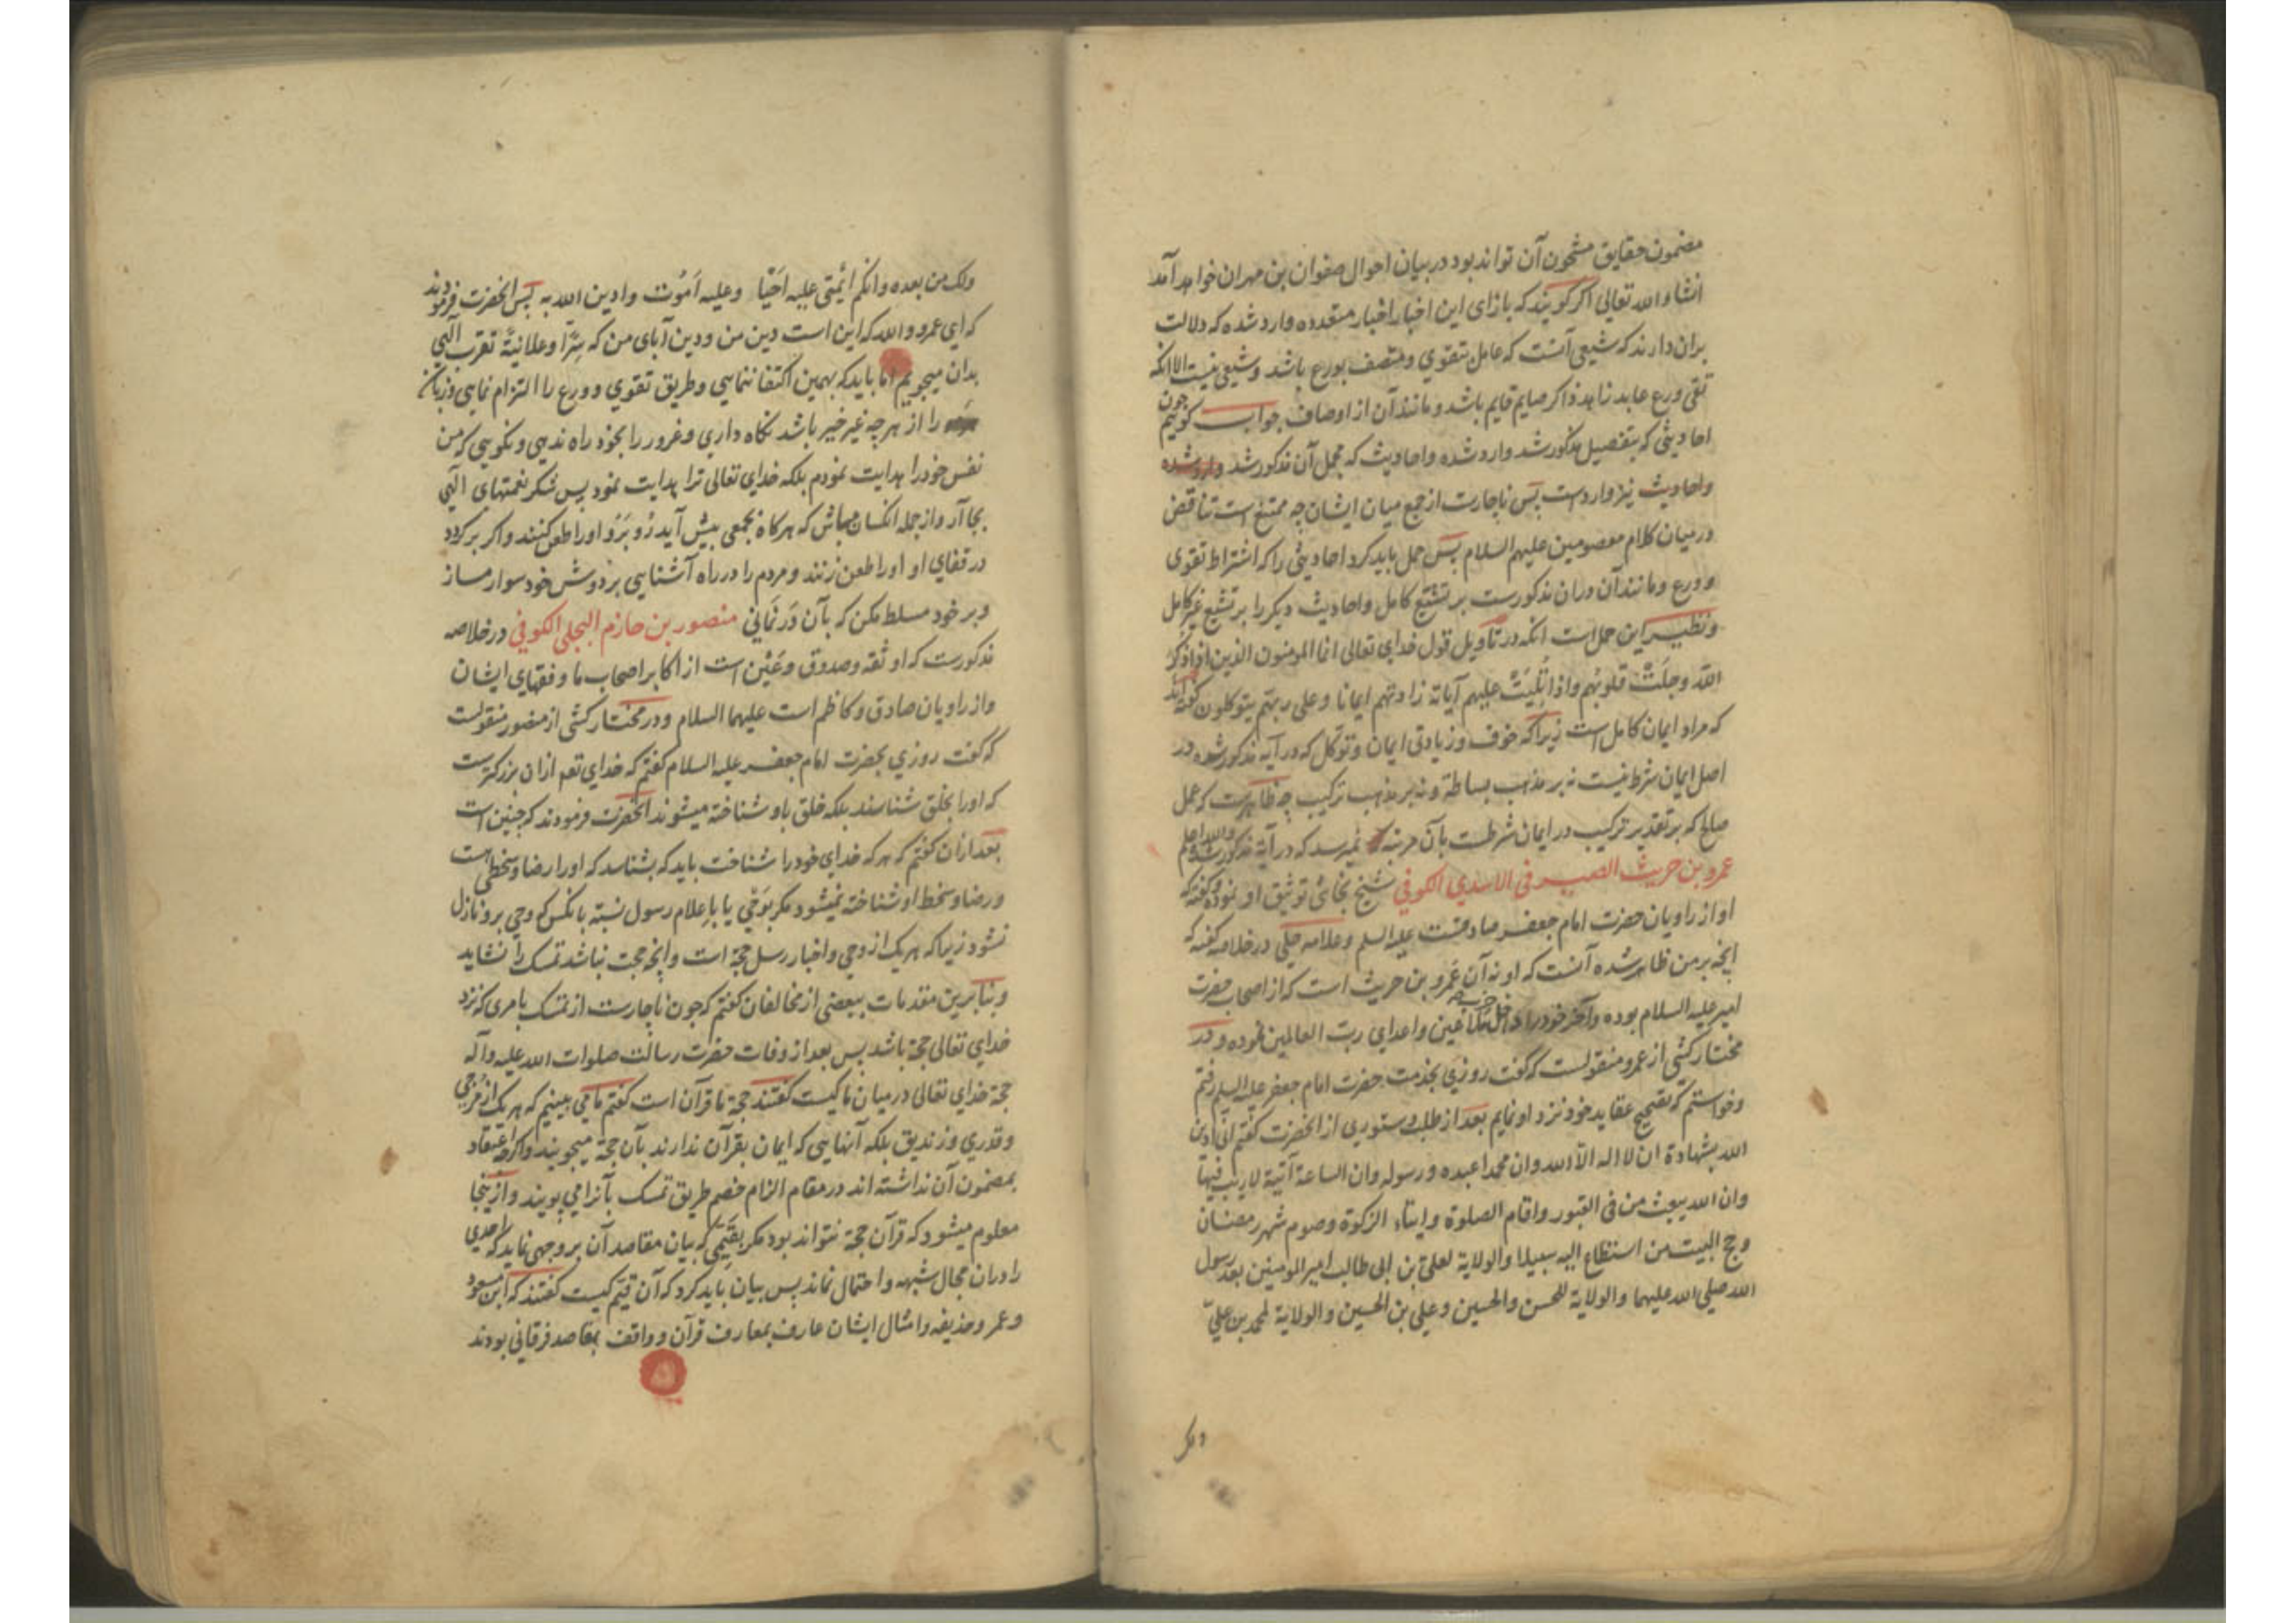 مضمون حقایق مشحون آن تواند بود در بیان احوال صفوان بن مهران خواهد آمد
انشاء الله تعالی اکر کویند که بازای این اخبار اخبار متعدده وارد شده که دلالت
بران دارند که شیعی آنست که عامل بتقوی و متصف بورع باشد و شیعی نیست الا آنکه
تقی ورع عابد زاهد ذاکر صایم قایم باشد و مانند آن از اوصاف جواب کوییم چون
احادیثی که بتفصیل مذکور شد وارد شده و احادیث که مجمل آن مذکور شد وارد شده
واحادیث نیز وارد است پس ناچارست از جمع میان ایشان چه ممتنع است تناقض
درمیان کلام معصومین علیهم السلام پس حمل باید کرد احادیثی را که اشتراط تقوی
و ورع و مانند آن دران مذکورست بر تشیع کامل واحادیث دیکر را بر تشیع غیر کامل
و نظیر این حمل است آنکه در تأویل قول خدای تعالی انما المومنون الذین اذا ذکر
الله وجلت قلوبهم واذا تلیت علیهم آیاته زادتهم ایمانا وعلی ربهم یتوکلون کفته اند
که مراد ایمان کامل است زیرا که خوف و زیادتی ایمان و توکل که در آیه مذکور شده در
اصل ایمان شرط نیست نه بر مذهب بساطة و نه بر مذهب ترکیب چه ظاهرست که عمل
صالح که بر تقدیر ترکیب در ایمان شرطست بآن مرتبه نمیرسد که در آیة مذکور شده والله اعلم
عمرو بن حریث الصیرفی الاسدی الکوفی شیخ نجاشی توثیق او نموده و کفته که
او از راویان حضرت امام جعفر صادقست علیه السلم و علامه حلی در خلاصه کفته که
آنچه بر من ظاهر شده آنست که او نه آن عمرو بن حریث است که از اصحاب حضرت
امیر علیه السلام بوده وآخر خود را داخل حزب ملاعین واعدای رب العالمین نموده و در
مختار کشی از عمرو منقولست که کفت روزی بخدمت حضرت امام جعفر علیه السلم رفتم
وخواستم که تصحیح عقاید خود نزد او نمایم بعد از طلب دستوری از آنحضرت کفتم انی ادین
الله بشهادة ان لا اله الا الله وان محمدا عبده ورسوله وان الساعة آتیة لا ریب فیها
وان الله یبعث من فی القبور واقام الصلوة وایتاء الزکوة وصوم شهر رمضان
وحج البیت من استطاع الیه سبیلا والولایة لعلی بن ابی طالب امیر المومنین بعد رسول
الله صلی الله علیهما والولایة للحسن والحسین وعلی بن الحسین والولایة لمحمد بن علی
ولک من بعده وانکم ائمتی علیه احیا وعلیه اموت وادین الله به پس آنحضرت فرمودند
که ای عمرو والله که این است دین من و دین آبای من که سرا وعلانیة تقرب الهی
بدان میجوییم اما باید که بهمین اکتفا ننمایی و طریق تقوی و ورع را التزام نمایی و زبان
را از هر چه غیر خیر باشد نکاه داری وغرور را بخود راه ندهی و نکویی که من
نفس خود را هدایت نمودم بلکه خدای تعالی ترا هدایت نمود پس شکر نعمتهای الهی
بجا آر و از جمله انکسان مباش که هرکاه بجمعی پیش آید رو برو او را طعن کنند واکر برکردد
در قفای او او را طعن زنند و مردم را در راه آشنایی بر دوش خود سوار مساز
و بر خود مسلط مکن که بآن درنمانی منصور بن حازم البجلی الکوفی در خلاصه
مذکورست که او ثقه و صدوق وعین است از اکابر اصحاب ما و فقهای ایشان
واز راویان صادق و کاظم است علیهما السلام و در مختار کشی از منصور منقولست
که کفت روزی بحضرت امام جعفر علیه السلام کفتم که خدای تعم ازان بزرکترست
که او را بخلق شناسند بلکه خلق باو شناخته میشوند آنحضرت فرمودند که چنین است
بعد ازان کفتم که هر که خدای خود را شناخت باید که بشناسد که او را رضا و سخطی است
و رضا و سخط او شناخته نمیشود مکر بوحی یا باعلام رسول نسبة بانکس که وحی برو نازل
نشود زیرا که هر یک از وحی واخبار رسل حجة است وآنچه حجت نباشد تمسک را نشاید
و بنا برین مقدمات ببعضی از مخالفان کفتم که چون ناچارست از تمسک بامری که نزد
خدای تعالی حجة باشد پس بعد از وفات حضرت رسالت صلوات الله علیه وآله
حجة خدای تعالی درمیان ما کیست کفتند حجة ما قرآن است کفتم ما می بینیم که هر یک از مرجی
و قدری و زندیق بلکه آنهایی که ایمان بقرآن ندارند بآن حجة میجویند واکرچه اعتقاد
بمضمون آن نداشته اند در مقام الزام خصم طریق تمسک بآنرا می پویند و ازینجا
معلوم میشود که قرآن حجة نتواند بود مکر بقیمی که بیان مقاصد آن بر وجهی نماید که احدی
را دران مجال شبهه و احتمال نماند پس بیان باید کرد که آن قیم کیست کفتند که ابن مسعود
و عمر و حذیفه وامثال ایشان عارف بمعارف قرآن و واقف بمقاصد فرقانی بودند
ولک